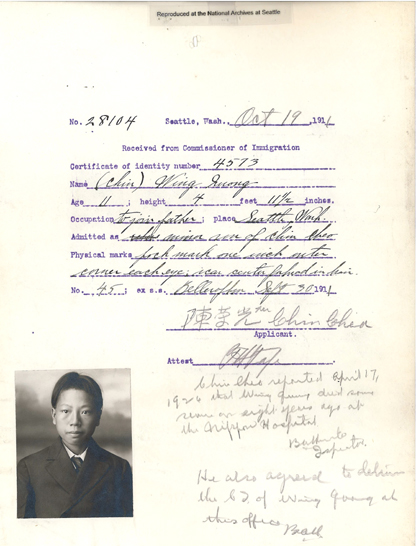 Reproduced at the National Archives at Seattle
No. 28104 Seattle, Wash., Oct 19, 1911
Received from Commissioner of Immigration
Certificate of identity number 4573
Name (Chin) Wing Quong
Age 11; height 4 feet 11 1/2 inches.
Occupation to join father; place Seattle, Wash.
Admitted as minor son of Chin Cheo
Physical marks pock mark one inch outer
corner each eye; scar center forehead in hair.
No. 45; ex s.s. Bellerophon Sept 30 1911
陳榮光 Chin Cheo
Applicant.
Attest
Chin Cheo reported April 17,
1926 that Wing Quong died some
seven or eight years ago at
the Nippon Hospital
Inspector.
He also agreed to deliver
the CI of Wing Quong at
this office